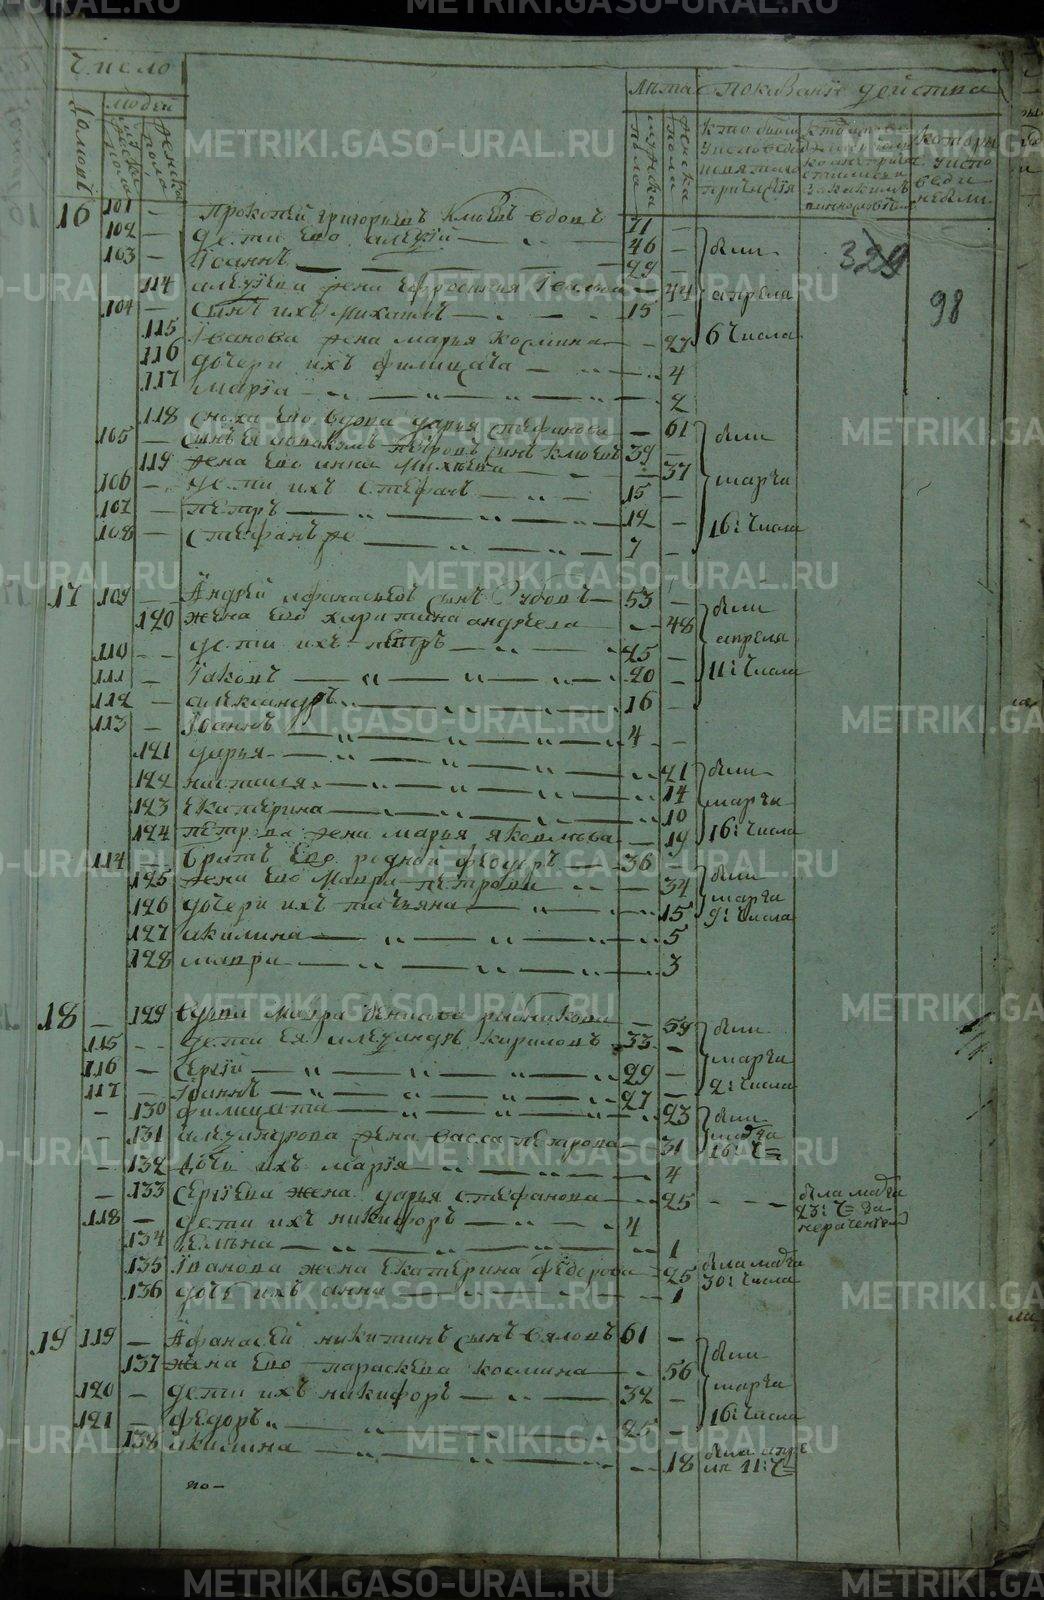 Число
Домовъ
Людей
мужска пола
женска пола
Лѣта
мужска пола
женска пола
показаніе действа
кто были
у исповеди
и святаго
причастія
98
329
16 101 — прокопей григорьевъ вдовъ 71 —
102 — дети ево алеѯей — 46 — были
103 — Іоаннъ — 29 —
114 алеѯеева жена — 44 апреля
104 — сынъ ихъ михаилъ — 15 —
115 Іванова жена марья космина — 27 6 числа
116 дочери ихъ филицата — 4
117 марія — 2
118 сноха ево вдова дарья стефанова — 61 были
105 — сынъ ея петровъ сынъ 39 —
119 жена ево анна михеева — 37 марта
106 — дети ихъ стефанъ — 15 —
107 — петръ — 12 — 16: числа
108 — стефанъ же — 7 —
17 109 — Андрей афанасьевъ сынъ Зубовъ — 53 — были
120 жена ево харитина андреева — 48 апреля
110 — дети ихъ петръ — 25 —
111 — Іаковъ — 20 — 11: числа
112 — александръ — 16 —
113 — Іоаннъ — 4 —
121 дарья — 21 были
122 настасья — 14 марта
123 Екатерина — 10
124 петрова жена марья яковлева — 19 16: числа
114 — братъ ево родной феодоръ — 36 — были
125 жена ево мавра петрова — 34 марта
126 дочери ихъ татьяна — 15 9: числа
127 акилина — 5
128 мавра — 3
18 — 129 вдова мавра денисова рыбникова — 59 были
115 — дети ея алеѯандръ кириловъ 33 — марта
116 — Сергій — 29 —
117 — Іоаннъ — 27 — 2: числа
— 130 филицата — 23 были
— 131 алеѯандрова жена васса петрова — 31 марта 16: ч=
— 132 дочь ихъ марія — 4
— 133 Сергіева жена дарья стефанова — 25 — — была марта 23: ч= за нераченіем
118 — дети ихъ никифоръ — 4
134 Елѣна — 1
135 Іванова жена Екатерина федорова — 25 была марта 30: числа
136 дочь ихъ анна — 1
19 119 — Афанасей никитинъ сынъ вяловъ 61 — были
137 жена ево параскева космина — 56 марта
120 — дети ихъ никифоръ — 32 —
121 — федоръ — 25 — 16: числа
138 акилина — 18 была апреля 11: ч=
по—
METRIKI.GASO-URAL.RU